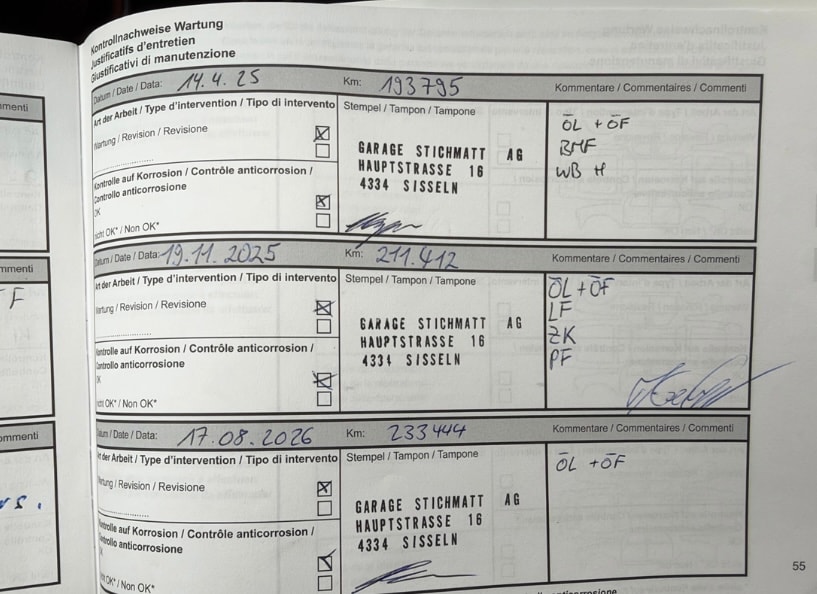 Kontrollnachweise Wartung
Justificatifs d'entretien
Giustificativi di manutenzione
Datum / Date / Data: 14.4.25 Km: 193795 Kommentare / Commentaires / Commenti
Art der Arbeit / Type d'intervention / Tipo di intervento Stempel / Tampon / Tampone
Wartung / Revision / Revisione
Kontrolle auf Korrosion / Contrôle anticorrosion /
Controllo anticorrosione
OK
nicht OK* / Non OK*
GARAGE STICHMATT AG
HAUPTSTRASSE 16
4334 SISSELN
ÖL + ÖF
BMF
WB H
Datum / Date / Data: 19.11.2025 Km: 211.412 Kommentare / Commentaires / Commenti
Art der Arbeit / Type d'intervention / Tipo di intervento Stempel / Tampon / Tampone
Wartung / Revision / Revisione
Kontrolle auf Korrosion / Contrôle anticorrosion /
Controllo anticorrosione
OK
nicht OK* / Non OK*
GARAGE STICHMATT AG
HAUPTSTRASSE 16
4334 SISSELN
ÖL + ÖF
LF
ZK
PF
Datum / Date / Data: 17.08.2026 Km: 233444 Kommentare / Commentaires / Commenti
Art der Arbeit / Type d'intervention / Tipo di intervento Stempel / Tampon / Tampone
Wartung / Revision / Revisione
Kontrolle auf Korrosion / Contrôle anticorrosion /
Controllo anticorrosione
OK
nicht OK* / Non OK*
GARAGE STICHMATT AG
HAUPTSTRASSE 16
4334 SISSELN
ÖL + ÖF
55